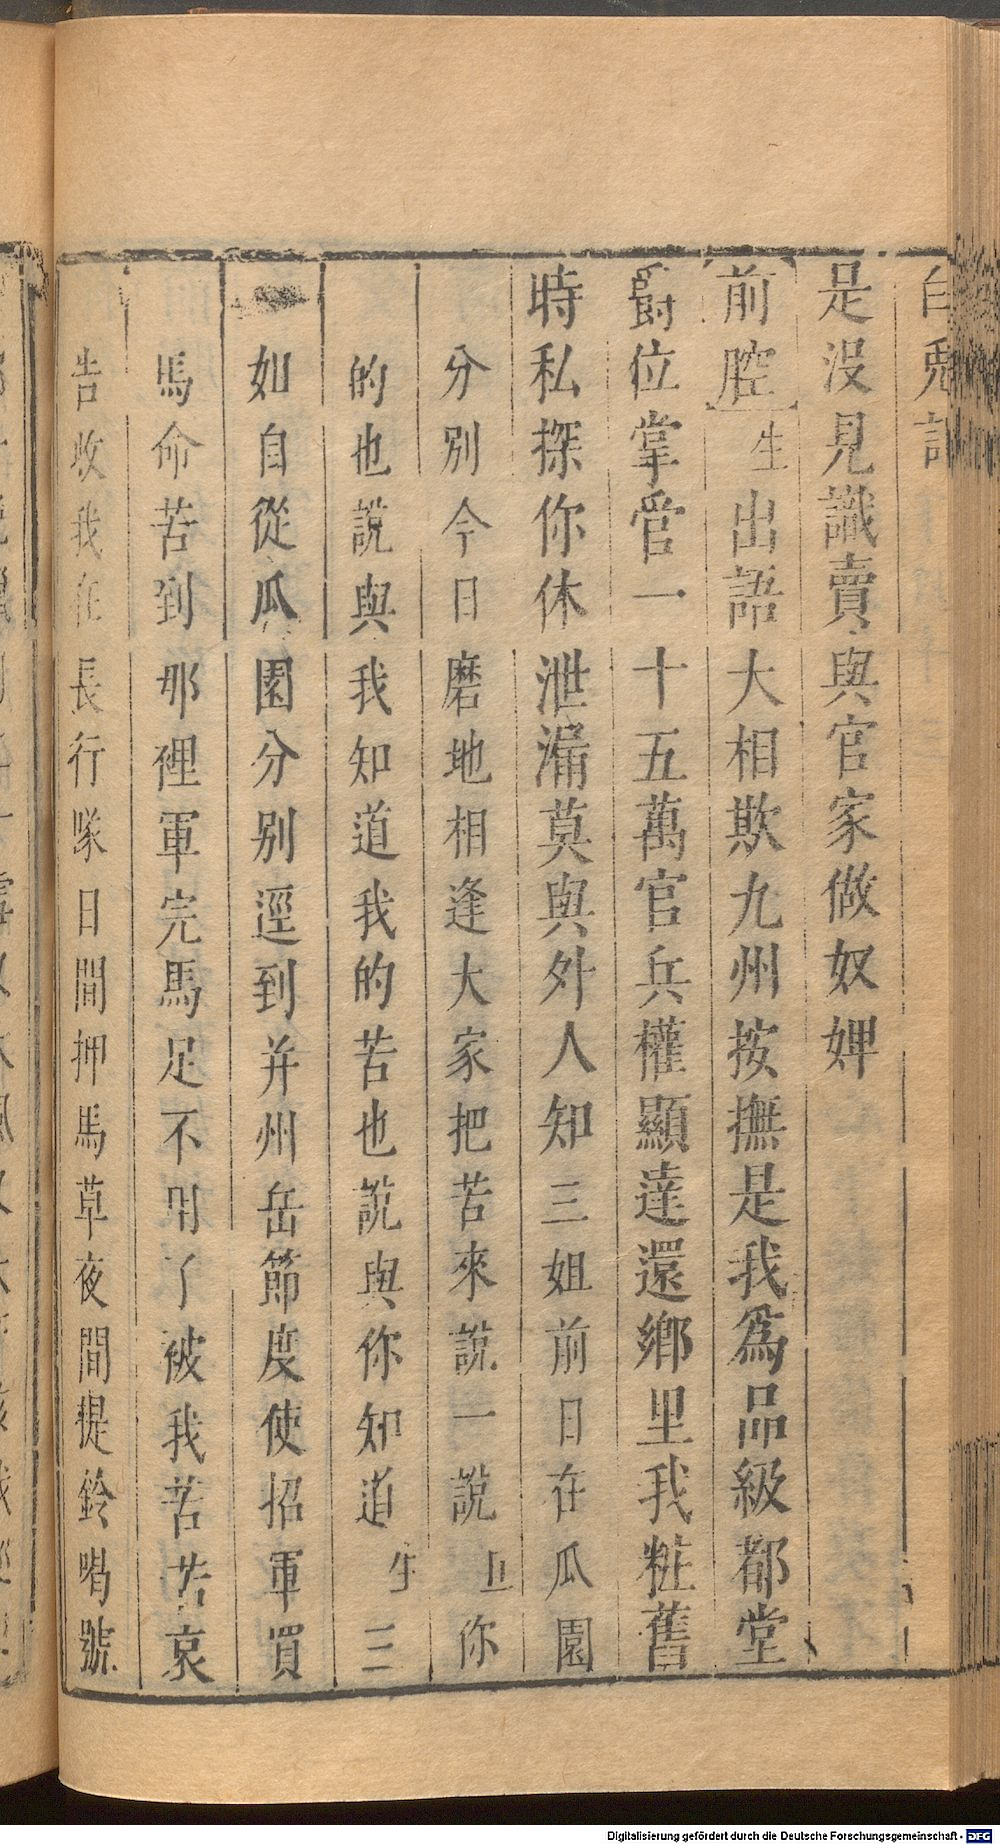 白兎記
是没見識賣與官家做奴婢
前腔 生 出語大相欺九州按撫是我為品級都堂
爵位掌管一十五萬官兵權顯達還鄉里我粧舊
時私探你休泄漏莫與外人知三姐前日在瓜園
分别今日磨地相逢大家把苦來說一說 旦 你
的也說與我知道我的苦也說與你知道 生 三
如自從瓜園分别逕到并州岳節度使招軍買
馬命苦到那裡軍完馬足不用了被我苦苦哀
告收我在長行隊日間押馬草夜間提鈴喝號
Digitalisierung gefördert durch die Deutsche Forschungsgemeinschaft - DFG